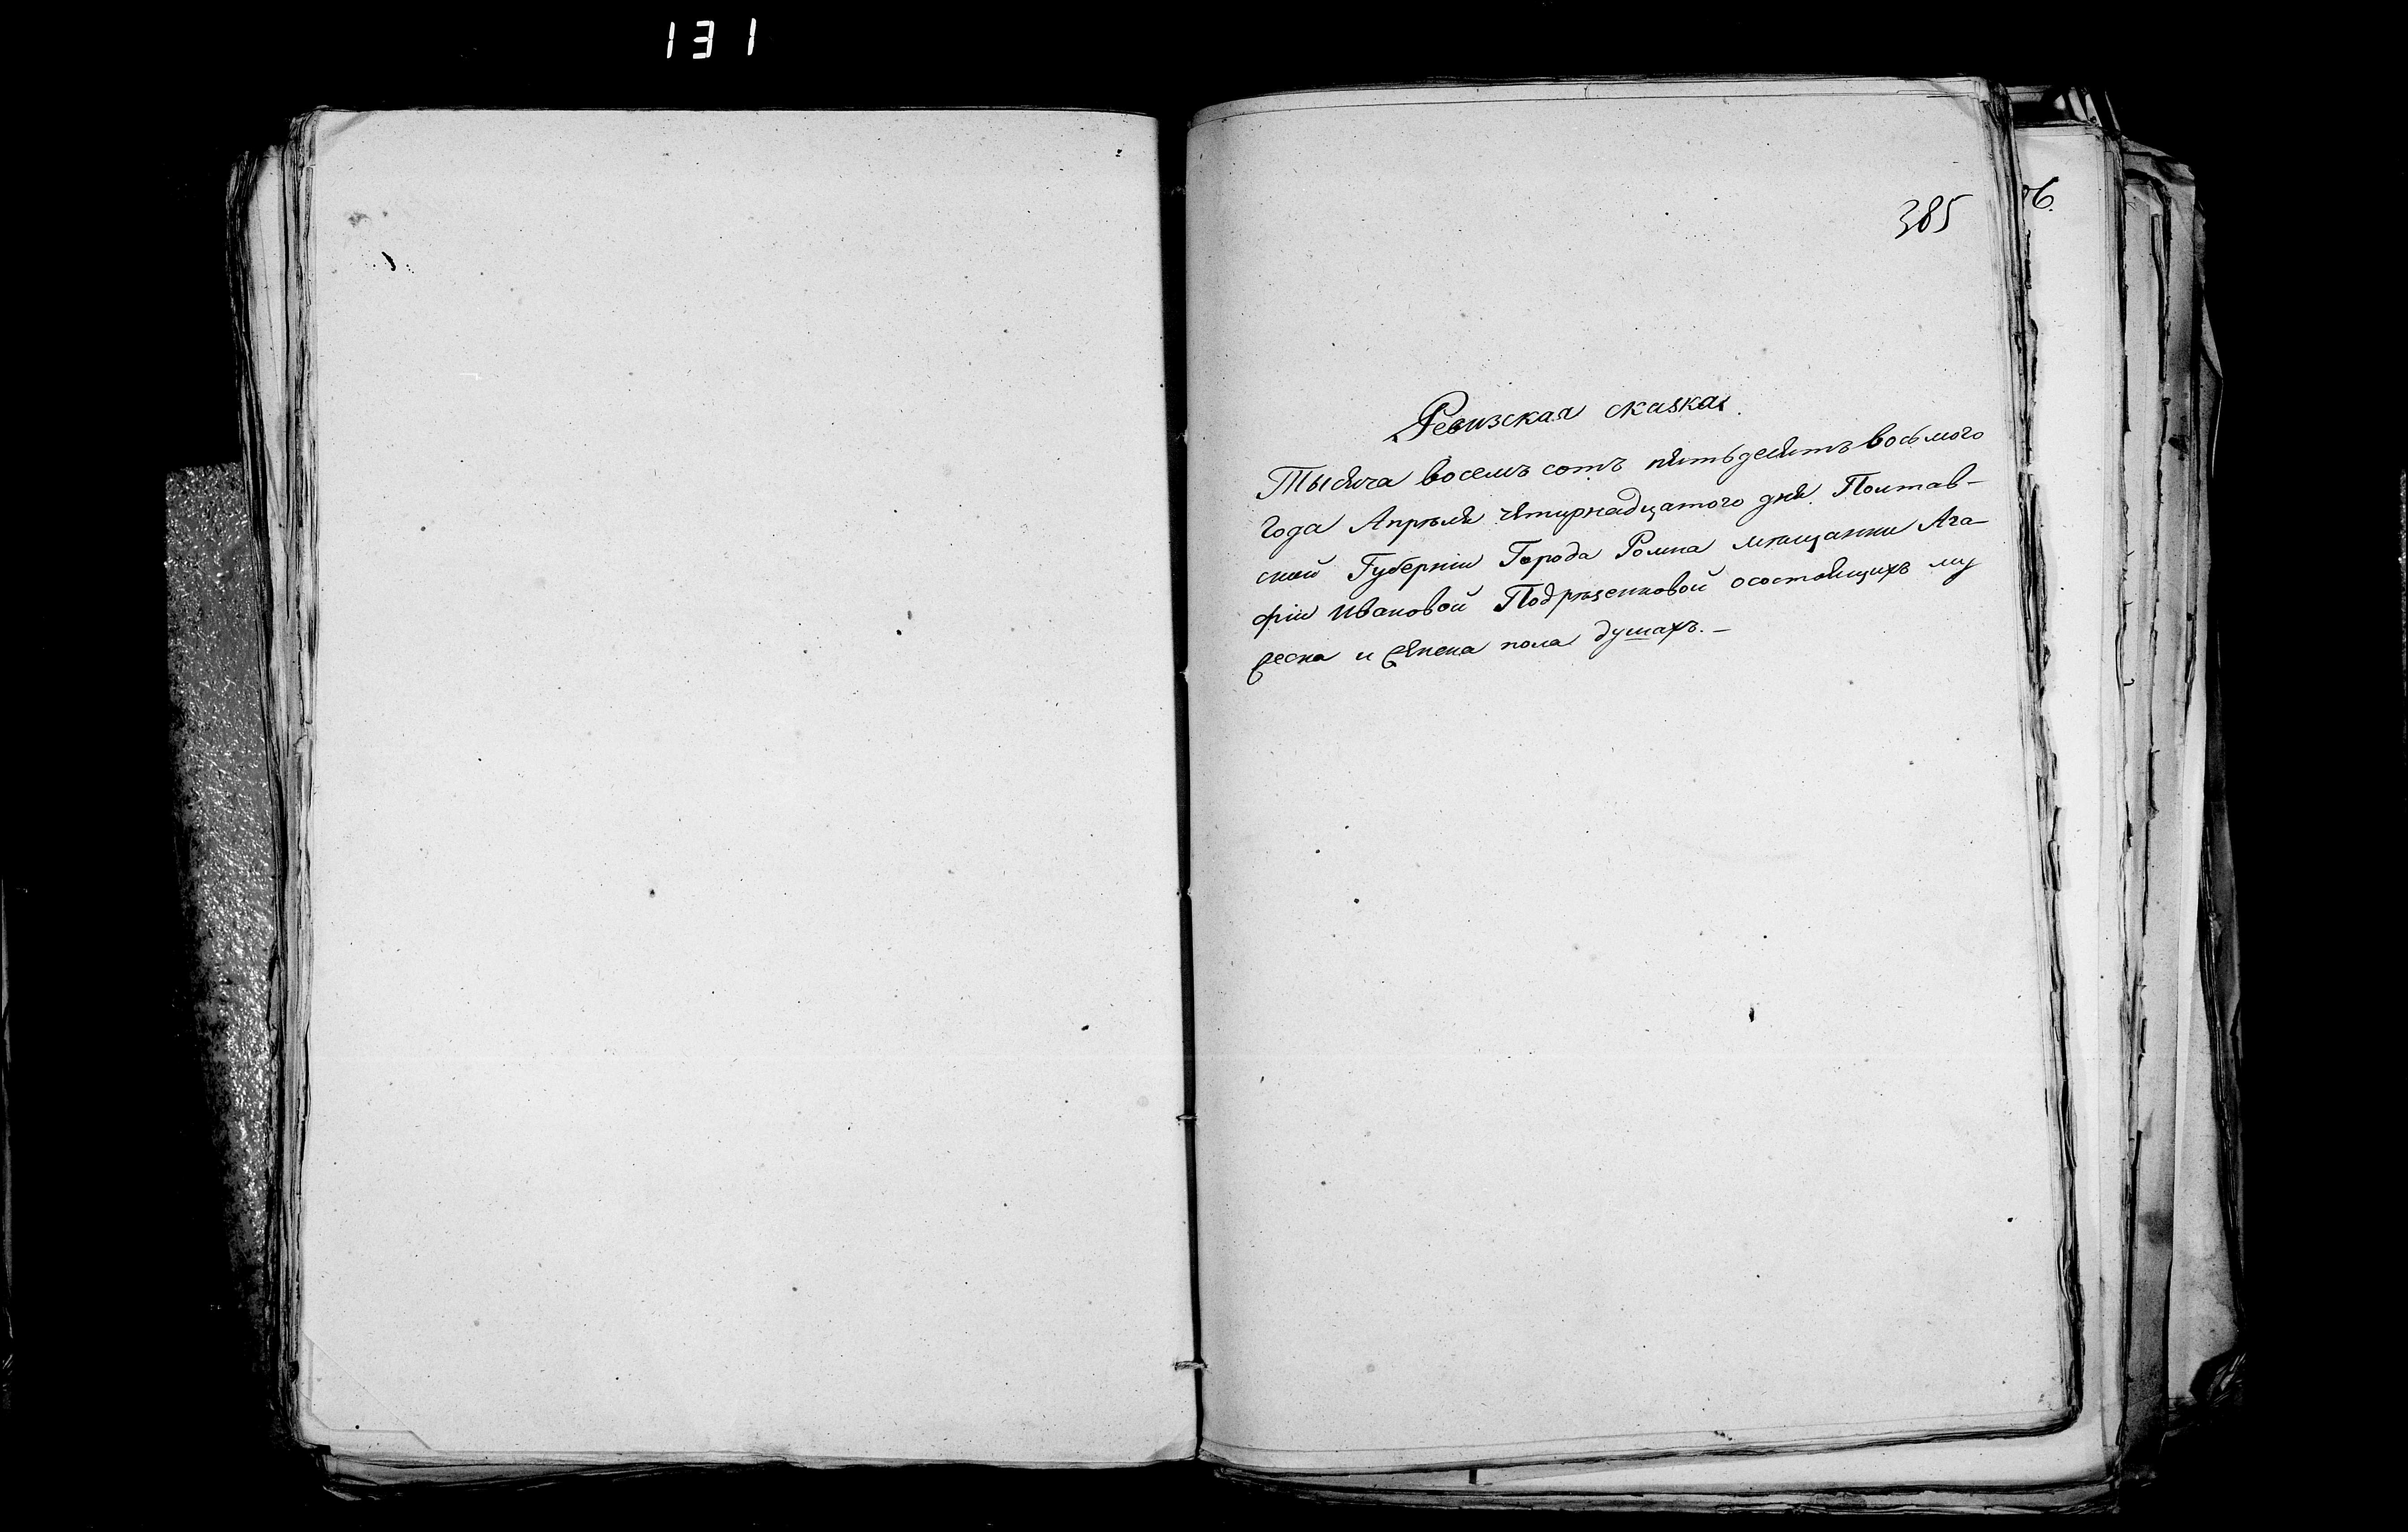 131
385
Ревизская сказка.
Тысяча восемъ сотъ пятьдесятъ восьмого
года Апреля четырнадцатого дня. Полтав-
ской Губерніи Города Ромна мещанки Ага-
фіи Ивановой Подрезенковой о состоящихъ му
ска и пола душахъ.-